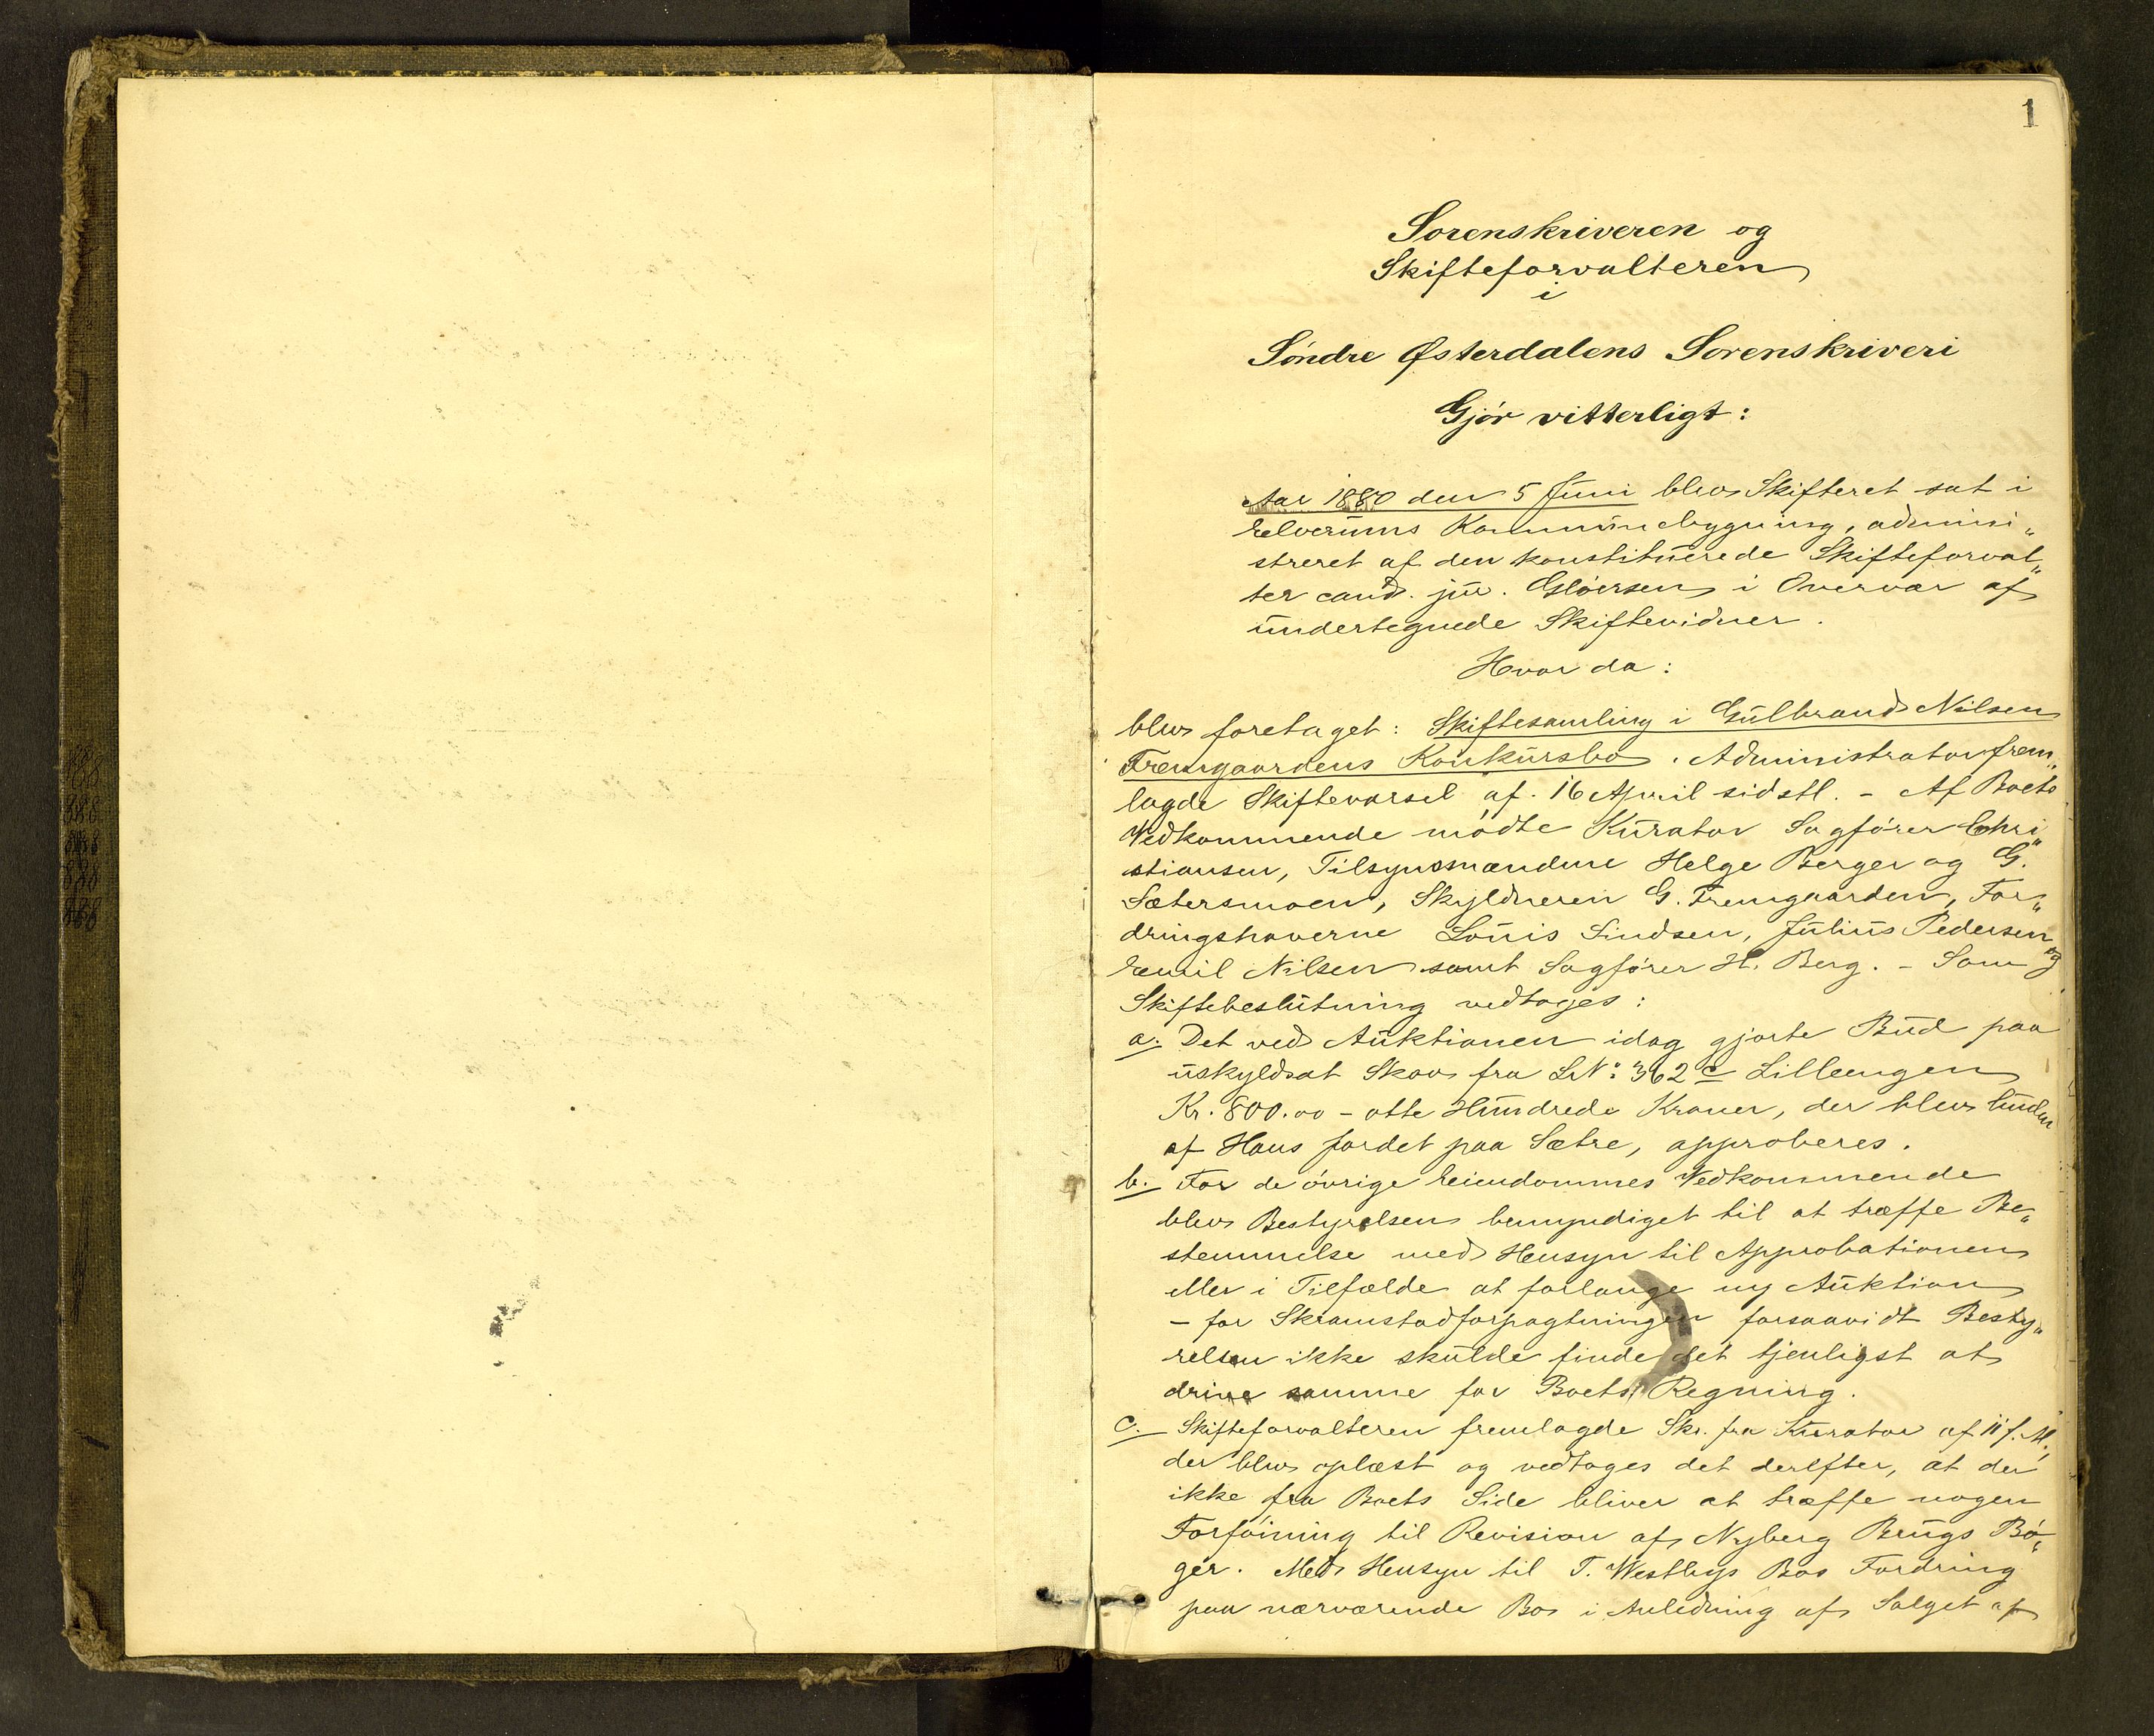 1
Sorenskriveren og
Skifteforvalteren
i
Søndre Østerdalens Sorenskriveri
Gjør vitterligt:
Aar 1880 den 5 Juni blev Skifteret sat i
Elverums Kommunebygning, admini„
streret af den konstituerede Skifteforval„
ter cand. jur. Gløersen i Overvær af
undertegnede Skiftevidner.
Hvor da:
blev foretaget: Skiftesamling i Gulbrand Nilsen
Fremgaardens Konkursbo. Administrator frem„
lagde Skiftevarsel af 16 April sidstl. - Af Boets
Vedkommende mødte Kurator Sagfører Chri„
stiansen, Tilsynsmændene Helge Berger og G.
Sætersmoen, Skyldneren G. Fremgaarden, For„
dringshaverne Louis Lindsen, Julius Pedersen og
Emil Nilsen samt Sagfører H. Berg. - Som
Skiftebeslutning vedtoges:
a. Det ved Auktionen idag gjorte Bud paa
uskyldsat Skov fra LN: 362 c Lilleengen
Kr. 800.00 - otte Hundrede Kroner, der blev buden
af Hans Jordet paa Sætre, approberes.
b. For de øvrige Eiendommes Vedkommende
blev Bestyrelsen bemyndiget til at træffe Be„
stemmelse med Hensyn til Approbationen
eller i Tilfælde at forlange ny Auktion
- for Skramstadforpagtningen forsaavidt Besty„
relsen ikke skulde finde det tjenligst at
drive samme for Boets Regning.
c. Skifteforvalteren fremlagde Skr. fra Kurator af 11 f. M.,
der blev oplæst og vedtoges det derefter, at der
ikke fra Boets Side bliver at træffe nogen
Forføining til Revision af Nyberg Brugs Bø„
ger. Med Hensyn til T. Westbys Bos Fordring
paa nærværende Bo i Anledning af Salget af